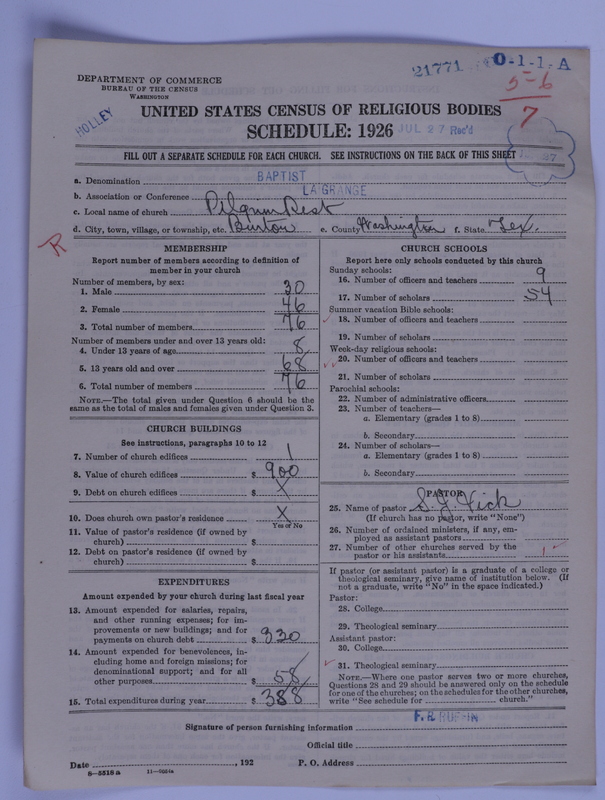 21771
O-1-1-A
5-6
7
DEPARTMENT OF COMMERCE
BUREAU OF THE CENSUS
WASHINGTON
HOLLEY
UNITED STATES CENSUS OF RELIGIOUS BODIES
SCHEDULE: 1926
JUL 27 Rec'd
27
FILL OUT A SEPARATE SCHEDULE FOR EACH CHURCH. SEE INSTRUCTIONS ON THE BACK OF THIS SHEET
a. Denomination BAPTIST
b. Association or Conference LA GRANGE
c. Local name of church Pilgrim Rest
d. City, town, village, or township, etc. Burton e. County Washington f. State Tex.
R
MEMBERSHIP
Report number of members according to definition of
member in your church
Number of members, by sex:
1. Male 30
2. Female 46
3. Total number of members 76
Number of members under and over 13 years old:
4. Under 13 years of age 8
5. 13 years old and over 68
6. Total number of members 76
NOTE.—The total given under Question 6 should be the
same as the total of males and females given under Question 3.
CHURCH BUILDINGS
See instructions, paragraphs 10 to 12
7. Number of church edifices 1
8. Value of church edifices $ 900
9. Debt on church edifices $ X
10. Does church own pastor's residence X
Yes or No
11. Value of pastor's residence (if owned by
church) $
12. Debt on pastor's residence (if owned by
church) $
EXPENDITURES
Amount expended by your church during last fiscal year
13. Amount expended for salaries, repairs,
and other running expenses; for im-
provements or new buildings; and for
payments on church debt $ 330
14. Amount expended for benevolences, in-
cluding home and foreign missions; for
denominational support; and for all
other purposes $ 58
15. Total expenditures during year $ 388
CHURCH SCHOOLS
Report here only schools conducted by this church
Sunday schools:
16. Number of officers and teachers 9
17. Number of scholars 54
Summer vacation Bible schools:
18. Number of officers and teachers
19. Number of scholars
Week-day religious schools:
20. Number of officers and teachers
21. Number of scholars
Parochial schools:
22. Number of administrative officers
23. Number of teachers—
a. Elementary (grades 1 to 8)
b. Secondary
24. Number of scholars—
a. Elementary (grades 1 to 8)
b. Secondary
PASTOR
25. Name of pastor
(If church has no pastor, write "None")
26. Number of ordained ministers, if any, em-
ployed as assistant pastors
27. Number of other churches served by the
pastor or his assistants 1
If pastor (or assistant pastor) is a graduate of a college or
theological seminary, give name of institution below. (If
not a graduate, write "No" in the space indicated.)
Pastor:
28. College
29. Theological seminary
Assistant pastor:
30. College
31. Theological seminary
NOTE.—Where one pastor serves two or more churches,
Questions 28 and 29 should be answered only on the schedule
for one of the churches; on the schedules for the other churches,
write "See schedule for church."
Signature of person furnishing information F. R. RUFFIN
Official title
Date , 192 P. O. Address
8-5518a